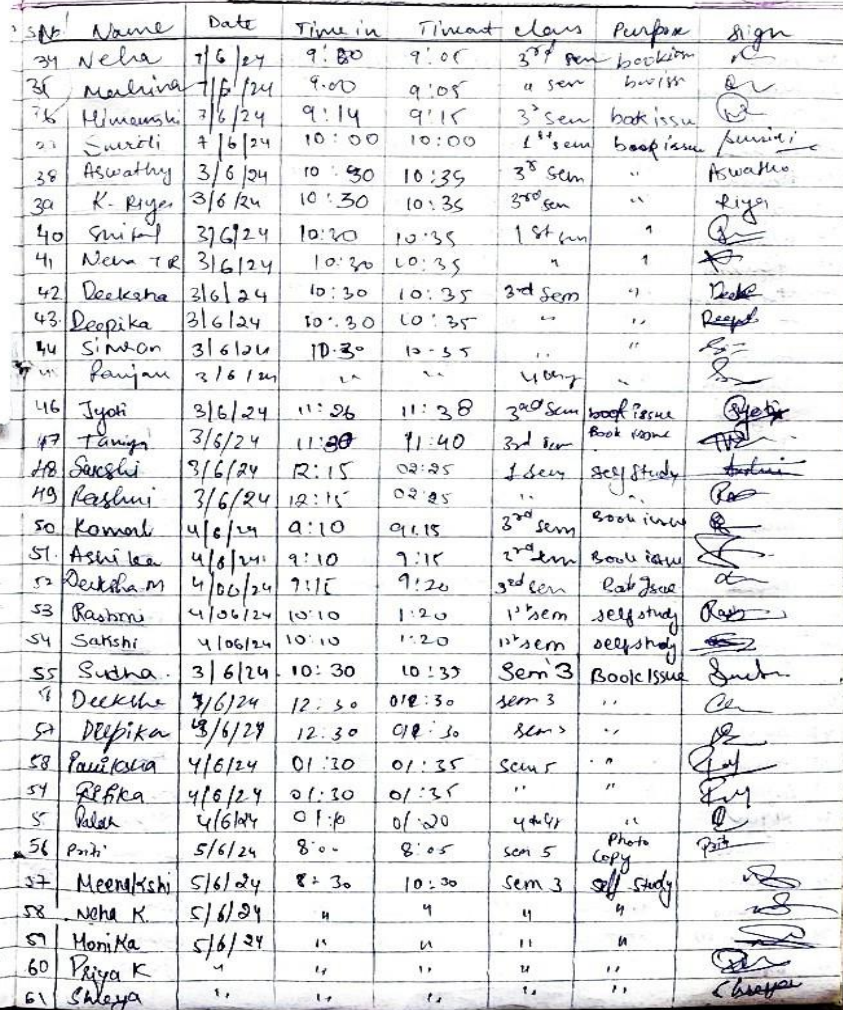 S.No Name Date Time in Timeout class Purpose Sign
34 Neha 7/6/24 9:00 9:05 3rd sem
35 7/6/24 9.00 9:05 sem
36 Himanshi 7/6/24 9:14 9:15 3rd Sem book issue
Smriti 7/6/24 10:00 10:00 1st sem book issue
38 Aswathy 3/6/24 10:30 10:35 3rd Sem " Aswathy
39 K. Riya 3/6/24 10:30 10:35 3rd sem " Riya
40 3/6/24 10:30 10:35 1st sem "
41 Neha T R 3/6/24 10:30 10:35 " "
42 Deeksha 3/6/24 10:30 10:35 3rd Sem "
43. Deepika 3/6/24 10:30 10:35 " "
44 Simran 3/6/24 10.30 10-35 " "
3/6/24 " " "
46 Jyoti 3/6/24 11:26 11:38 3rd Sem book issue Jyoti
47 3/6/24 11:30 11:40 3rd sem Book issue
48 Sakshi 3/6/24 12:15 02:25 1 sem self study
49 Rashmi 3/6/24 12:15 02:25 " "
50 Komal 4/6/24 9:10 9:15 3rd sem Book issue
51. Ashika 4/6/24 9:10 9:15 2rd sem Book issue
52 Deeksha M 4/06/24 9:15 9:20 3rd sem
53 Rashmi 4/06/24 10:10 1:20 1st sem self study
54 Sakshi 4/06/24 10:10 1:20 1st sem self study
55 Sudha. 3/6/24 10:30 10:35 Sem 3 Book Issue
Deeksha /6/24 12:30 :30 sem 3 "
57 Deepika /6/24 12:30 :30 sem 3 "
58 4/6/24 01:30 01:35 Sem 5 "
59 4/6/24 01:30 01:35 " "
5 Palak 4/6/24 01:20 "
56 Priti 5/6/24 8:00 8:05 sem 5 Photo copy Priti
57 Meenakshi 5/6/24 8:30 10:30 sem 3 self study
58 Neha K. 5/6/24 " " " "
59 Monika 5/6/24 " " " "
60 Priya K " " " " "
61 Shreya " " " " " Shreya